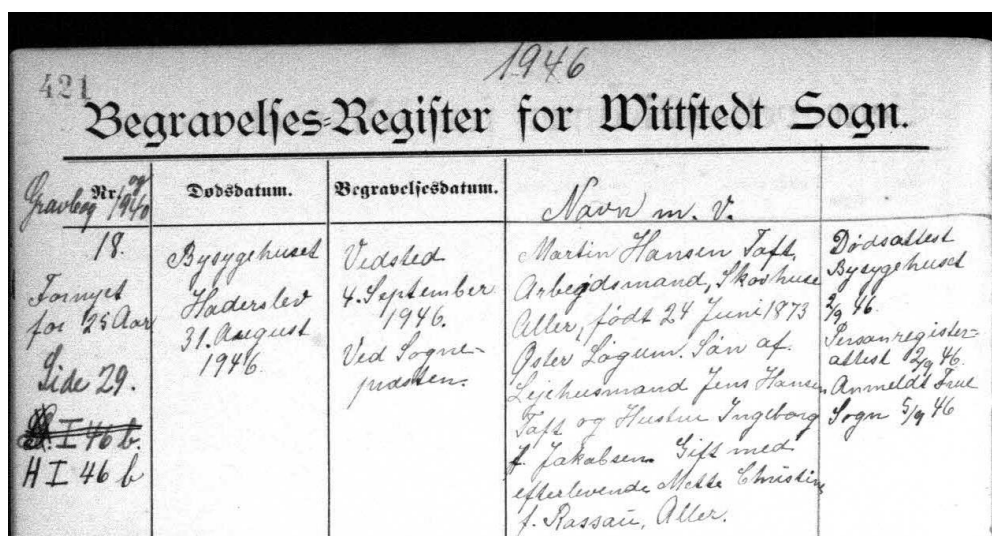 1946
421
Begravelses-Register for Wittstedt Sogn.
Gravbog Nr. og 1940
Dødsdatum.
Begravelsesdatum.
Navn m. V.
18.
Fornyet
for 25 Aar
Side 29.
I 46 b.
H I 46 b
Bysygehuset
Haderslev
31. August
1946.
Vedsted
4. September
1946.
Ved Sogne-
præsten.
Martin Hansen Taft,
Arbejdsmand, Skovhuse
Aller, født 24 Juni 1873
Øster Løgum. Søn af
Lejehusmand Jens Hansen
Taft og Hustru Ingeborg
f. Jakobsen. Gift med
efterlevende Mette Christine
f. Rassau, Aller.
Dødsattest
Bysygehuset
2/9 46.
Personregister-
attest 2/9 46.
Anmeldt Frue
Sogn 5/9 46